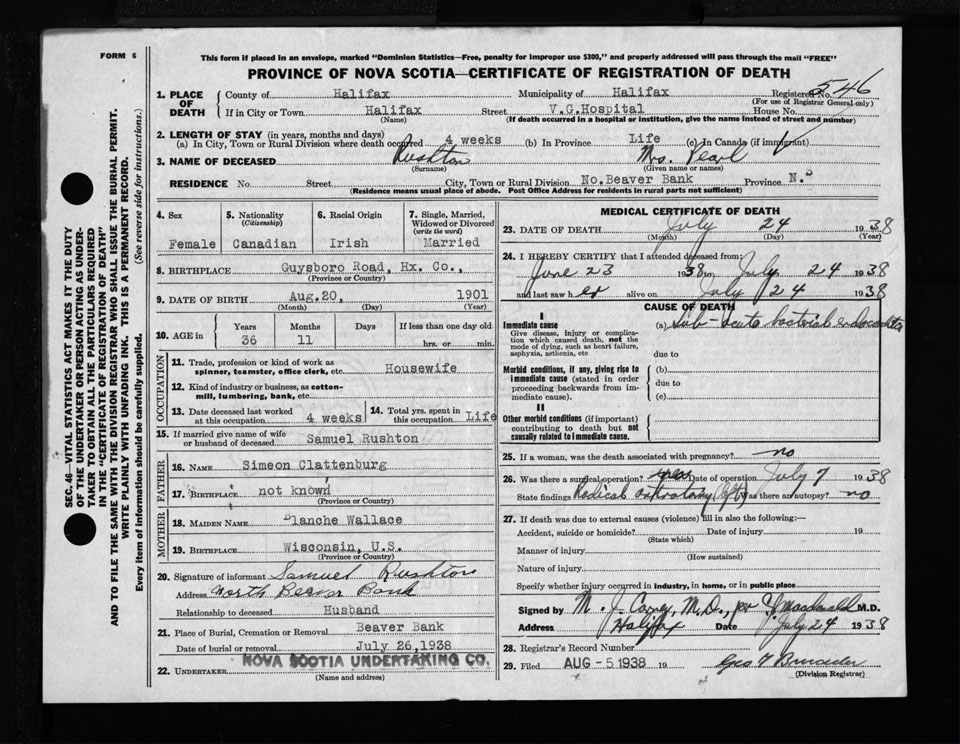 FORM 6
This form if placed in an envelope, marked "Dominion Statistics—Free, penalty for improper use $300," and properly addressed will pass through the mail "FREE"
PROVINCE OF NOVA SCOTIA—CERTIFICATE OF REGISTRATION OF DEATH
SEC. 46—VITAL STATISTICS ACT MAKES IT THE DUTY
OF THE UNDERTAKER OR PERSON ACTING AS UNDER-
TAKER TO OBTAIN ALL THE PARTICULARS REQUIRED
IN THE "CERTIFICATE OF REGISTRATION OF DEATH"
AND TO FILE THE SAME WITH THE DIVISION REGISTRAR WHO SHALL ISSUE THE BURIAL PERMIT.
WRITE PLAINLY WITH UNFADING INK. THIS IS A PERMANENT RECORD.
Every item of information should be carefully supplied. (See reverse side for instructions.)
1. PLACE OF DEATH
County of Halifax Municipality of Halifax Registered No. 546
(For use of Registrar General only)
If in City or Town Halifax Street V.G.Hospital House No.
(Name) (If death occurred in a hospital or institution, give the name instead of street and number)
2. LENGTH OF STAY (in years, months and days)
(a) In City, Town or Rural Division where death occurred 4 weeks (b) In Province Life (c) In Canada (if immigrant)
3. NAME OF DECEASED Rushton Mrs. Pearl
(Surname) (Given name or names)
RESIDENCE No. Street City, Town or Rural Division No.Beaver Bank Province N.S
(Residence means usual place of abode. Post Office Address for residents in rural parts not sufficient)
4. Sex 5. Nationality (Citizenship) 6. Racial Origin 7. Single, Married, Widowed or Divorced (write the word)
Female Canadian Irish Married
8. BIRTHPLACE Guysboro Road, Hx. Co.,
(Province or Country)
9. DATE OF BIRTH Aug.20, 1901
(Month) (Day) (Year)
10. AGE in Years Months Days If less than one day old
36 11 hrs. or min.
OCCUPATION
11. Trade, profession or kind of work as
spinner, teamster, office clerk, etc. Housewife
12. Kind of industry or business, as cotton-
mill, lumbering, bank, etc.
13. Date deceased last worked at this occupation 4 weeks 14. Total yrs. spent in this occupation Life
15. If married give name of wife
or husband of deceased Samuel Rushton
FATHER
16. NAME Simeon Clattenburg
17. BIRTHPLACE not known
(Province or Country)
MOTHER
18. MAIDEN NAME Blanche Wallace
19. BIRTHPLACE Wisconsin, U.S.
(Province or Country)
20. Signature of informant Samuel Rushton
Address North Beaver Bank
Relationship to deceased Husband
21. Place of Burial, Cremation or Removal Beaver Bank
Date of burial or removal July 26,1938
22. UNDERTAKER NOVA SCOTIA UNDERTAKING CO.
(Name and address)
MEDICAL CERTIFICATE OF DEATH
23. DATE OF DEATH July 24 1938
(Month) (Day) (Year)
24. I HEREBY CERTIFY that I attended deceased from:
June 23 1938 to July 24 1938
and last saw her alive on July 24 1938
CAUSE OF DEATH
I
Immediate cause (a) Sub-acute bacterial endocarditis
Give disease, injury or complica-
tion which caused death, not the
mode of dying, such as heart failure,
asphyxia, asthenia, etc due to
Morbid conditions, if any, giving rise to (b)
immediate cause (stated in order due to
proceeding backwards from im-
mediate cause). (c)
II
Other morbid conditions (if important)
contributing to death but not
causally related to immediate cause.
25. If a woman, was the death associated with pregnancy? no
26. Was there a surgical operation? yes Date of operation July 7 1938
State findings Radical (left) Was there an autopsy? no
27. If death was due to external causes (violence) fill in also the following:—
Accident, suicide or homicide? Date of injury 19
(State which)
Manner of injury
(How sustained)
Nature of injury
Specify whether injury occurred in industry, in home, or in public place
Signed by M. J. M.D., per Macdonald M.D.
Address Halifax Date July 24 1938
28. Registrar's Record Number
29. Filed AUG -5 1938 19 Geo
(Division Registrar)